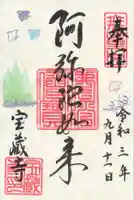 奉拝
令和三年
九月十一日
阿弥陀如来
宝蔵寺